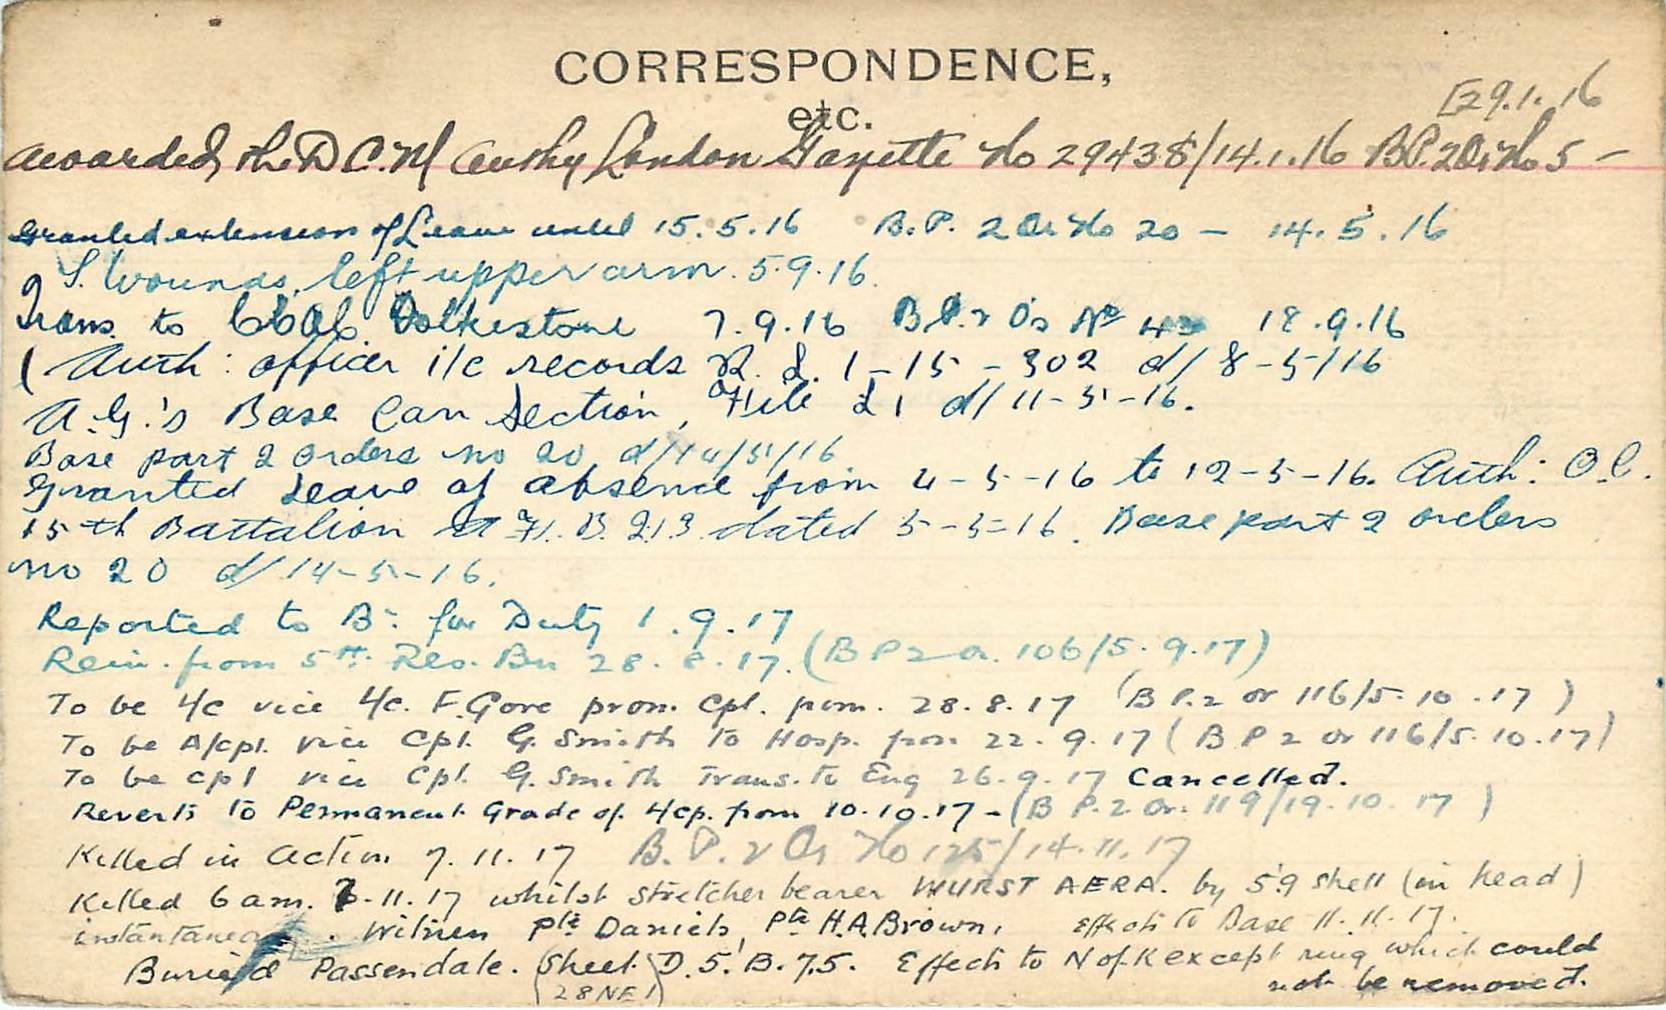 CORRESPONDENCE,
etc.
[29.1.16
Awarded the D.C.M. Authy London Gazette No 29438/14.1.16 B.P.2 Or No 5 -
Granted extension of Leave until 15.5.16 B.P. 2 Or No 20 - 14.5.16
g S. Wounds, left upper arm. 5.9.16.
Trans to CCAC Folkestone 7.9.16 B.P.2 Os No 18.9.16
(Auth: officer i/c records R. L. 1-15-302 d/8-5/16
A.G.'s Base Can Section, File L1 d/11-5-16.
Base part 2 orders no 20 d/14/5/16
Granted leave of absence from 4-5-16 to 12-5-16. Auth: O.C.
15th Battalion A.F. B. 213 dated 5-5-16. Base part 2 orders
no 20 d/14-5-16.
Reported to Bn for Duty 1.9.17
Rein. from 5th Res. Bn 28.8.17. (B P 2 O. 106/5.9.17)
To be L/c vice L/c. F. Gore prom. Cpl. from. 28.8.17 (B P.2 or 116/5.10.17)
To be A/cpl. vice Cpl. G. Smith To Hosp. from 22.9.17 (B P 2 or 116/5.10.17)
To be cpl vice Cpl. G. Smith Trans. to Eng 26.9.17 Cancelled.
Reverts to Permanent Grade of L/cp. from 10.10.17 - (B P.2 Or. 119/19.10.17)
Killed in action 7.11.17 B.P.2 Or No 125/14.11.17
Killed 6 am. 7.11.17 whilst stretcher bearer WURST AERA. by 5.9 shell (in head)
instantaneous. Witness Pte Daniels, Pte H.A. Brown. Effects to Base 11.11.17.
Buried Passendale. (Sheet D.5.B.7.5. Effects to N of K except ring which could
(28NE1) not be removed.